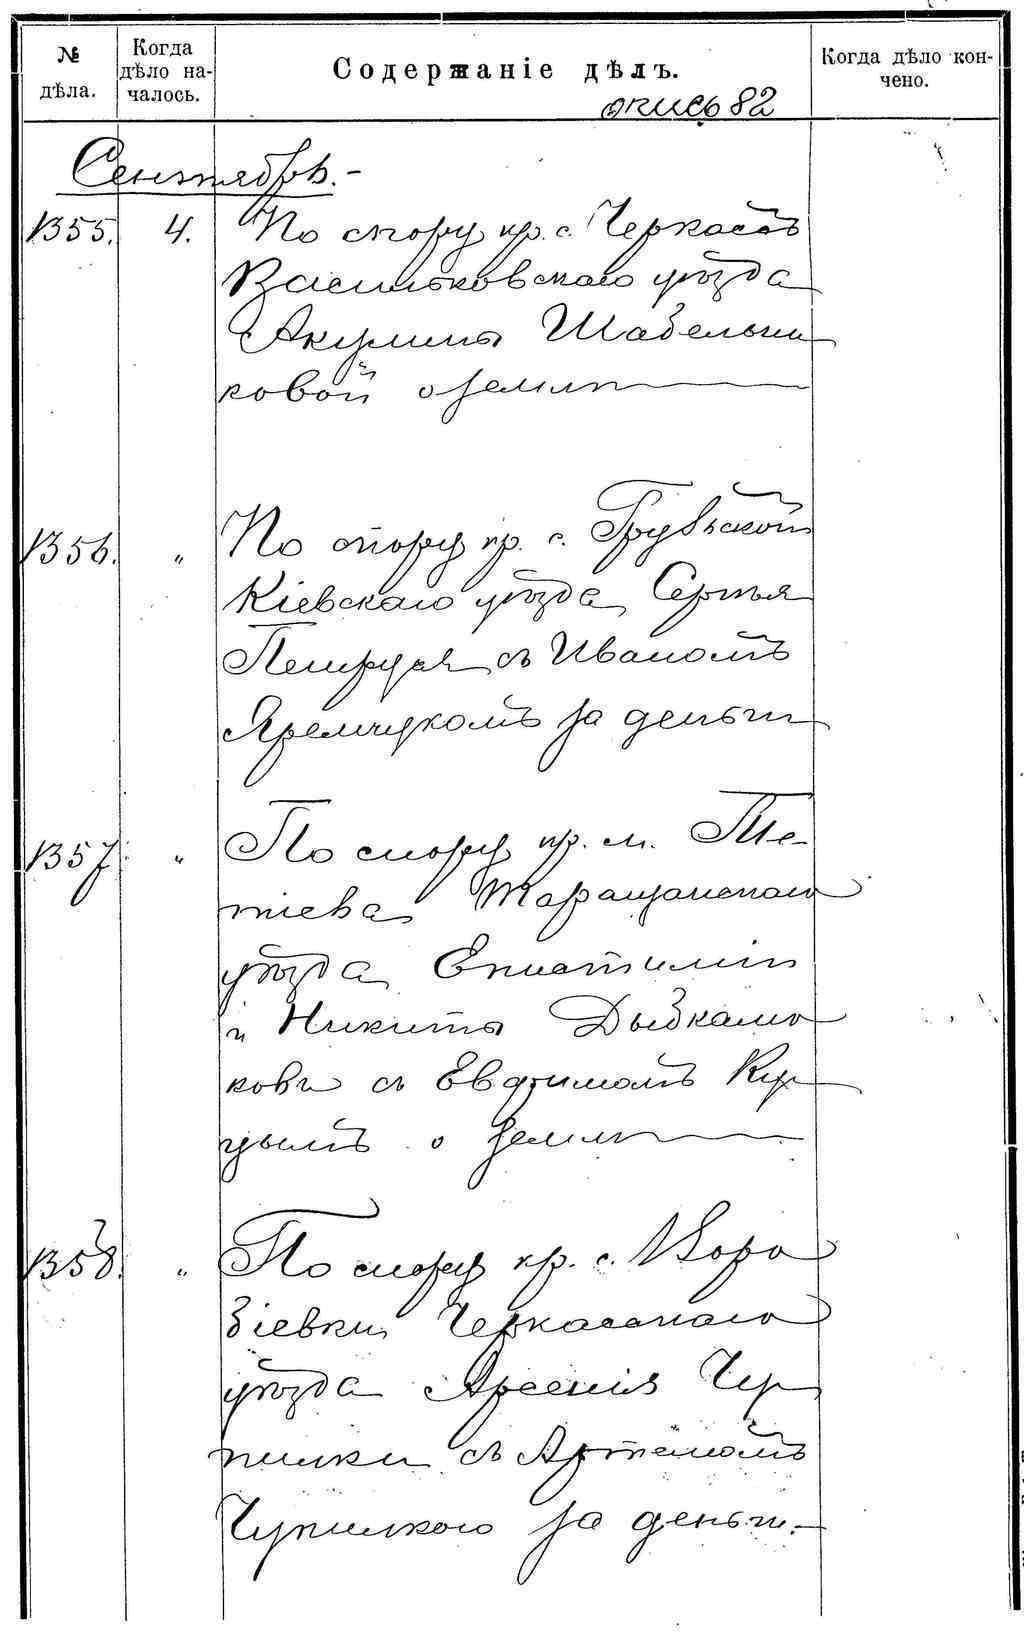 № дѣла.
Когда дѣло на-чалось.
Содержаніе дѣлъ.
Когда дѣло кон-чено.
опись 82
Сентябрь.-
1355. 4. По спору кр. с. Черкасъ
Васильковскаго уѣзда
Акулины Шабельни
ковой о землѣ
1356. " По спору кр. с. Грубской
Кіевскаго уѣзда Сергѣя
с Иваномъ
Яремчукомъ за деньги
1357. " По спору кр. м. Те-
тіева Таращанскаго
уѣзда Епистиміи
и Никиты
ковъ съ Евфимомъ Ку
цымъ о землѣ
1358. " По спору кр. с.
Черкасскаго
уѣзда Арсенія Чу
пилки съ Артемомъ
Чупилкою за деньги.-